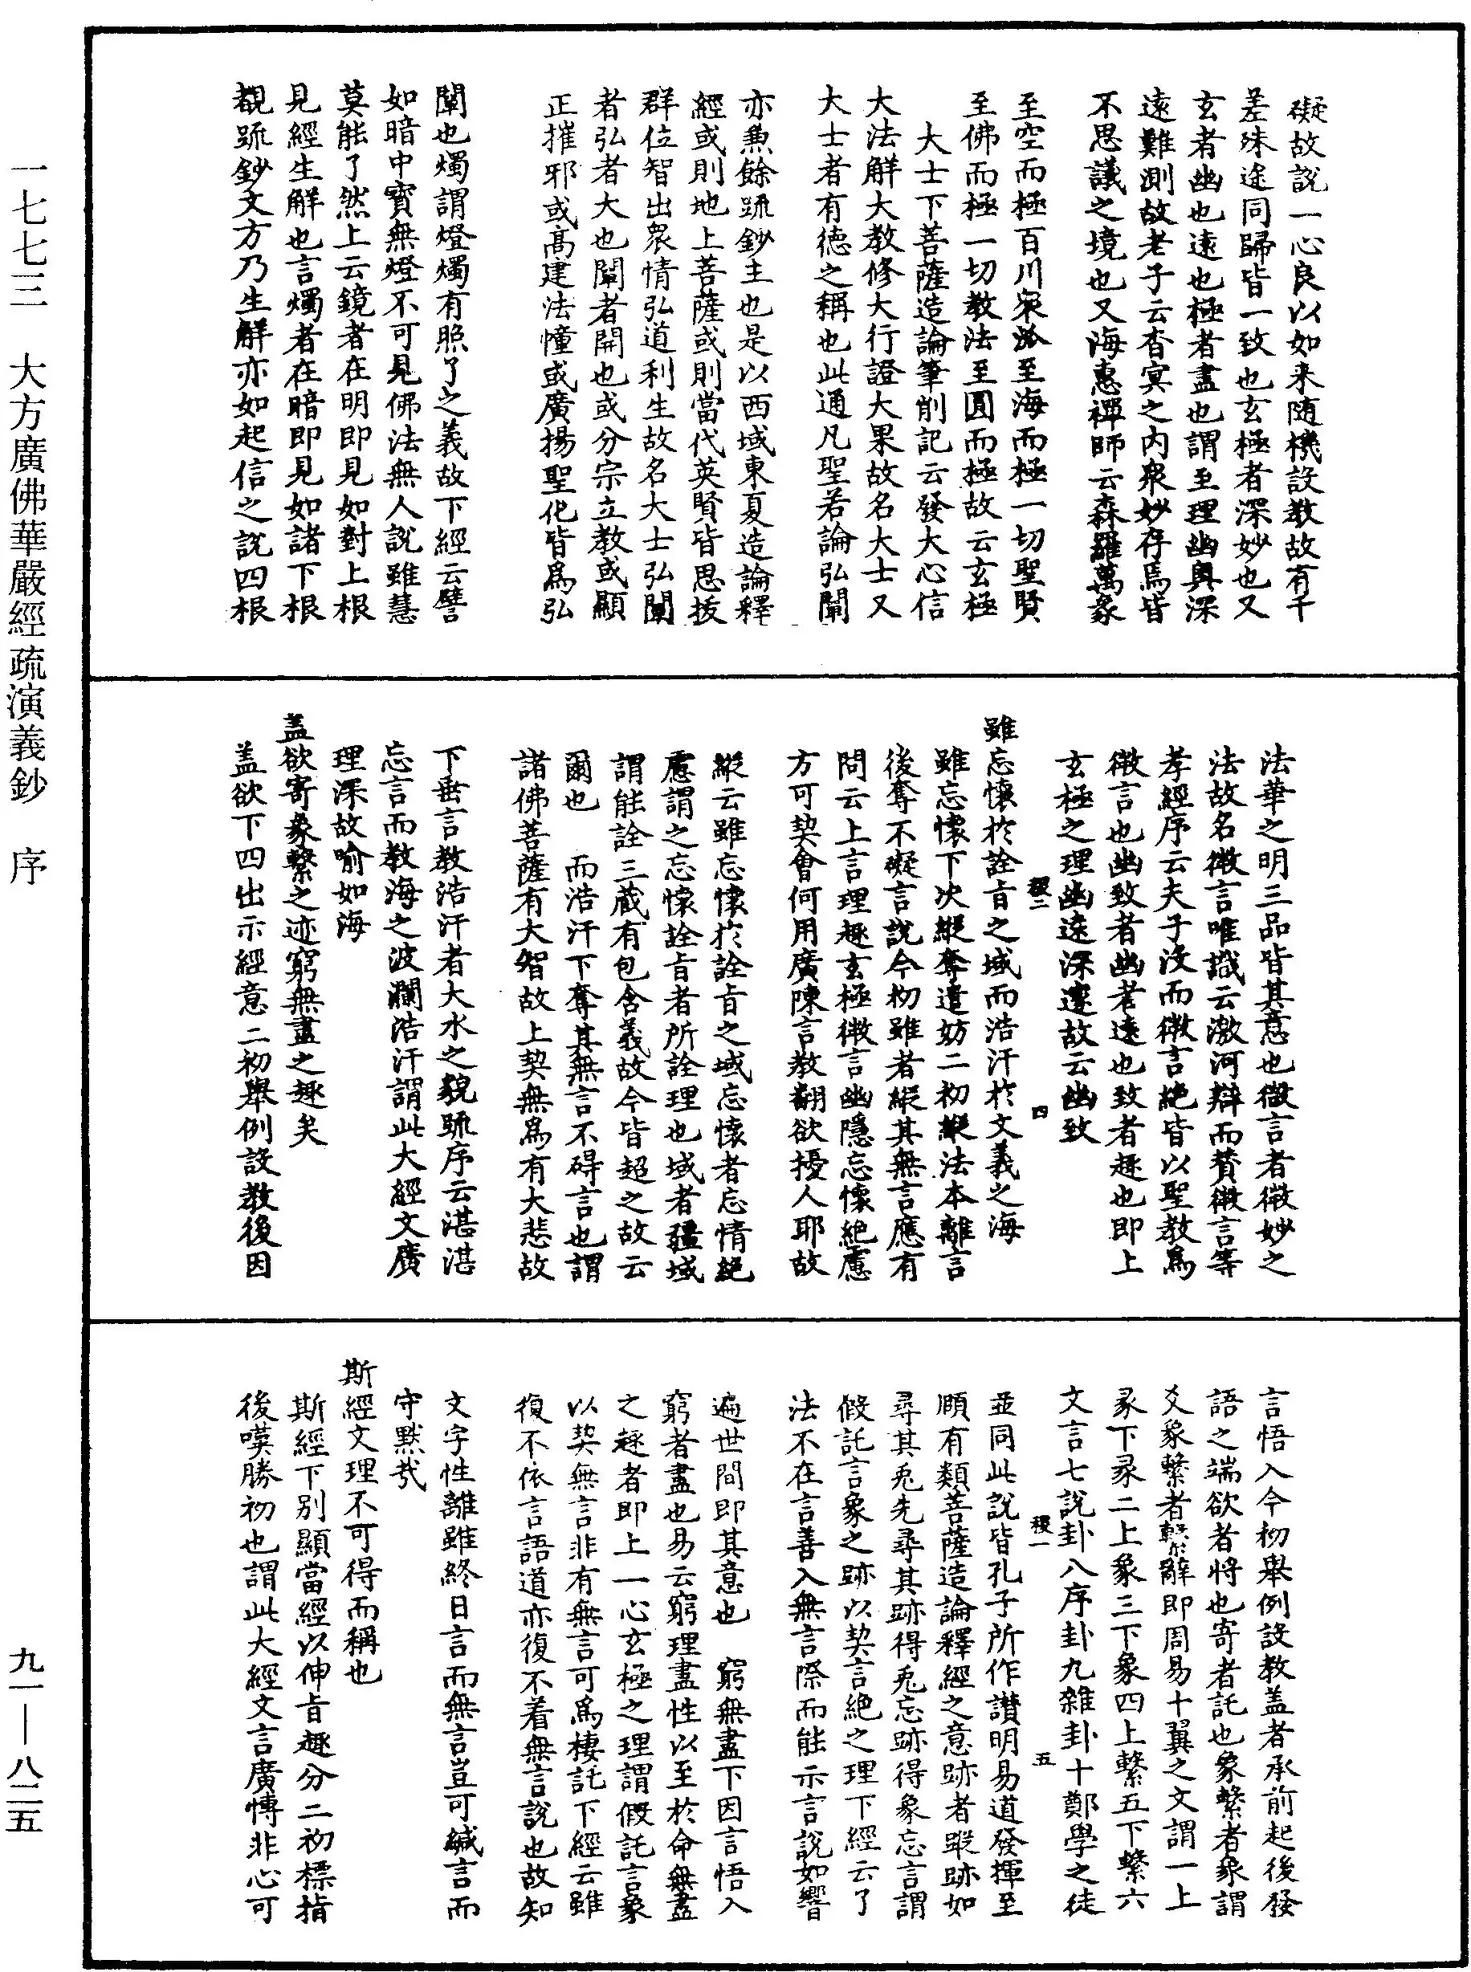 礙故説一心良以如来随機設教故有千
差殊途同歸皆一致也玄極者深妙也又
玄者幽也遠也極者盡也謂至理幽奥深
遠難測故老子云杳冥之内衆妙存焉皆
不思議之境也又海惠禪師云森羅萬象
至空而極百川衆派至海而極一切聖賢
至佛而極一切教法至圓而極故云玄極
大士下菩薩造論筆削記云發大心信
大法解大教修大行證大果故名大士又
大士者有德之稱也此通凡聖若論弘闡
亦兼餘䟽鈔主也是以西域東夏造論釋
經或則地上菩薩或則當代英賢皆思拔
群位智出衆情弘道利生故名大士弘闡
者弘者大也闡者開也或分宗立教或顯
正摧邪或髙建法幢或廣揚聖化皆爲弘
闡也燭謂燈燭有照了之義故下經云譬
如暗中寶無燈不可見佛法無人説雖慧
莫能了然上云鏡者在明即見如對上根
見經生解也言燭者在暗即見如諸下根
覩䟽鈔文方乃生解亦如起信之説四根
法華之明三品皆其意也微言者微妙之
法故名微言唯識云激河辯而賛微言等
孝經序云夫子没而微言絶皆以聖教爲
微言也幽致者幽者遠也致者趣也即上
玄極之理幽遠深邃故云幽致
稷一 四
雖忘懷於詮旨之域而浩汗於文義之海
雖忘懷下次縱奪遣妨二初縱法本離言
後奪不礙言説今初雖者縱其無言應有
問云上言理趣玄極微言幽隱忘懷絶慮
方可契會何用廣陳言教翻欲擾人耶故
縱云雖忘懷於詮旨之域忘懷者忘情絶
慮謂之忘懷詮旨者所詮理也域者疆域
謂能詮三藏有包含義故今皆超之故云
爾也 而浩汗下奪其無言不碍言也謂
諸佛菩薩有大智故上契無爲有大悲故
下垂言教浩汗者大水之貌䟽序云湛湛
忘言而教海之波瀾浩汗謂此大經文廣
理深故喻如海
盖欲寄象繫之迹窮無盡之趣矣
盖欲下四出示經意二初舉例設教後因
言悟入今初舉例設教盖者承前起後發
語之端欲者將也寄者託也象繫者象謂
爻象繫者繫辭即周易十翼之文謂一上
彖下彖二上象三下象四上繫五下繫六
文言七説卦八序卦九雜卦十鄭學之徒
稷一 五
並同此説皆孔子所作讃明易道發揮至
頤有類菩薩造論釋經之意跡者蹤跡如
尋其兎先尋其跡得兎忘跡得象忘言謂
假託言象之跡以契言絶之理下經云了
法不在言善入無言際而能示言説如響
遍世間即其意也 窮無盡下因言悟入
窮者盡也易云窮理盡性以至於命無盡
之趣者即上一心玄極之理謂假託言象
以契無言非有無言可爲棲託下經云雖
復不依言語道亦復不着無言説也故知
文字性離雖終日言而無言豈可緘言而
守黙㢤
斯經文理不可得而稱也
斯經下別顯當經以伸旨趣分二初標指
後嘆勝初也謂此大經文言廣博非心可
一七七三 大方廣佛華嚴經疏演義鈔 序
九一——八二五